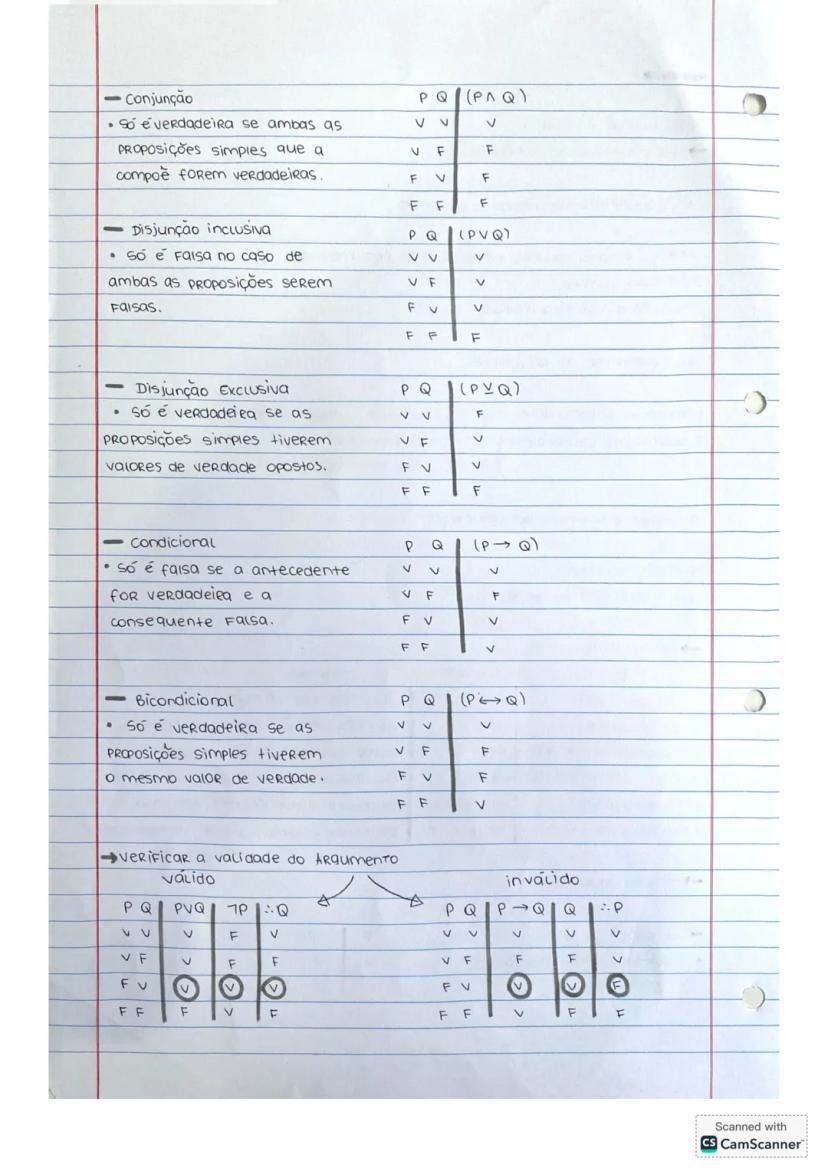 — Conjunção
• Só é verdadeira se ambas as
proposições simples que a
compoẽ forem verdadeiras.
P Q (P ∧ Q)
V V V
V F F
F V F
F F F
— Disjunção inclusiva
• Só é falsa no caso de
ambas as proposições serem
falsas.
P Q (P ∨ Q)
V V V
V F V
F V V
F F F
— Disjunção Exclusiva
• Só é verdadeira se as
proposições simples tiverem
valores de verdade opostos.
P Q (P ⊻ Q)
V V F
V F V
F V V
F F F
— Condicional
• Só é falsa se a antecedente
for verdadeira e a
consequente falsa.
P Q (P → Q)
V V V
V F F
F V V
F F V
— Bicondicional
• Só é verdadeira se as
proposições simples tiverem
o mesmo valor de verdade.
P Q (P ↔ Q)
V V V
V F F
F V F
F F V
→ Verificar a validade do Argumento
válido
P Q P∨Q ¬P ∴Q
V V V F V
V F V F F
F V V V V
F F F V F
inválido
P Q P → Q Q ∴P
V V V V V
V F F F V
F V V V F
F F V F F
Scanned with
CS CamScanner